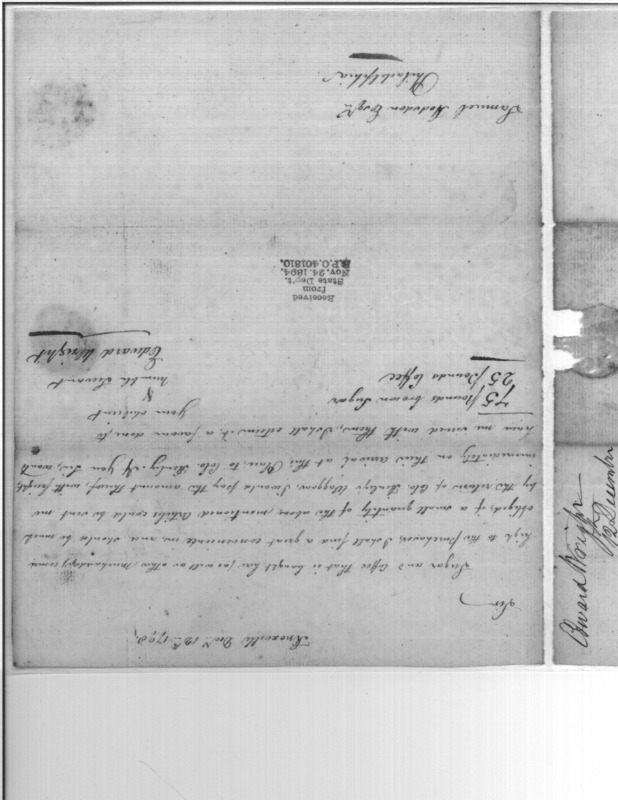 Knoxville Decr 12th 1792.
Sir
Sugar and Coffee that is bought here (as well as other Merchandize) come
high to the purchaser, I shall find a great convenience in, and should be much
obliged, if a small quantity of the above mentioned Articles could be sent me
by the return of Colo Henley's Waggon, I would pay the amount thereof with freight
immediately on their arrival at this place to Colo Henley. If you Sir, would
have me served with them, I shall esteem it a favour done, to
Your obedient
& humble Servant
Edward Wright
75/ Pounds brown Sugar
25/ Pounds Coffee
Received
from
State Dep't.
Nov. 24. 1894.
R.P.O. 401810.
Samuel Hodgdon Esqr
Philadelphia
Edward Wright
12 December